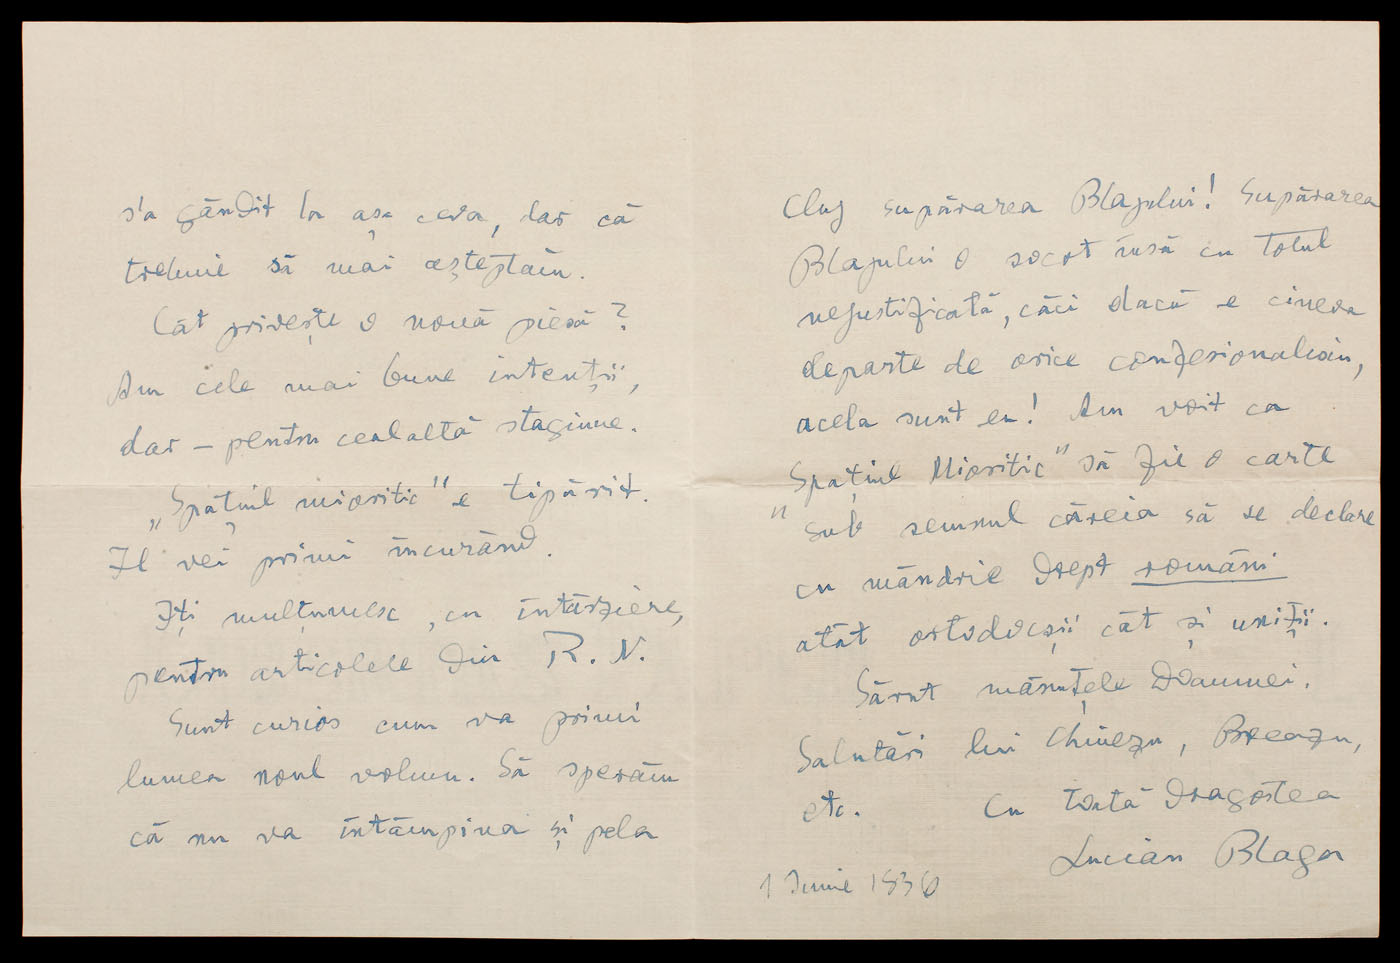 s'a gândit la așa ceva, dar că
trebuie să mai așteptăm.
Cât privește o nouă piesă?
Am cele mai bune intenții,
dar – pentru cealaltă stagiune.
„Spațiul mioritic" e tipărit.
Il vei primi încurând.
Iți mulțumesc, cu întârziere,
pentru articolele din R. N.
Sunt curios cum va primi
lumea noul volum. Să sperăm
că nu va întâmpina și pela
Cluj supărarea Blajului! Supărarea
Blajului o socot însă cu totul
nejustificată, căci dacă e cineva
departe de orice confesionalism,
acela sunt eu! Am voit ca
"Spațiul Mioritic" să fie o carte
sub semnul căreia să se declare
cu mândrie drept români
atât ortodocșii cât și uniții.
Sărut mânuțele Doamnei.
Salutări lui Chinezu, Breazu,
etc. Cu toată dragostea
Lucian Blaga
1 Iunie 1936